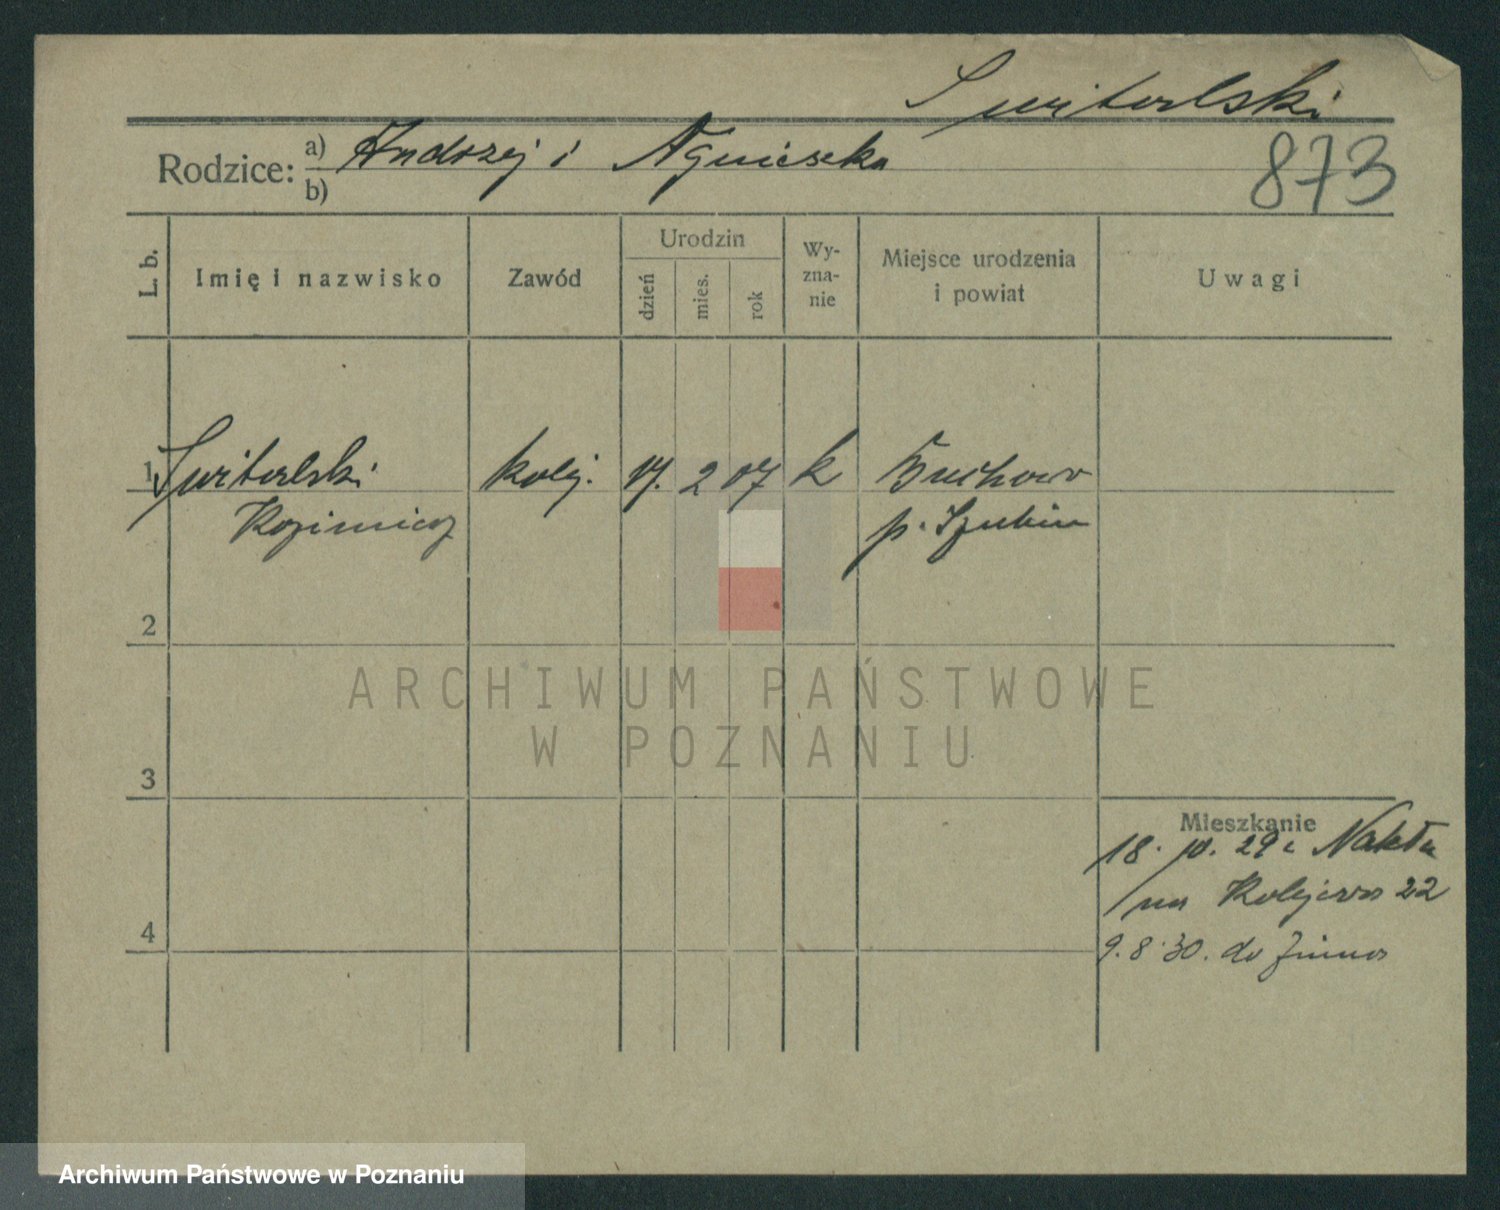 Switalski
Rodzice: a) Andrzej i Agnieszka
b)
873
L. b.
Imię i nazwisko
Zawód
Urodzin
dzień
mies.
rok
Wy-
zna-
nie
Miejsce urodzenia
i powiat
Uwagi
1 Switalski kolej. 17. 2 07 k
Kazimierz p. Szubin
2
ARCHIWUM PAŃSTWOWE
W POZNANIU
3
Mieszkanie
18. 29 z Nakła
na Kolejowa 22
4
9.8.30. do
Archiwum Państwowe w Poznaniu